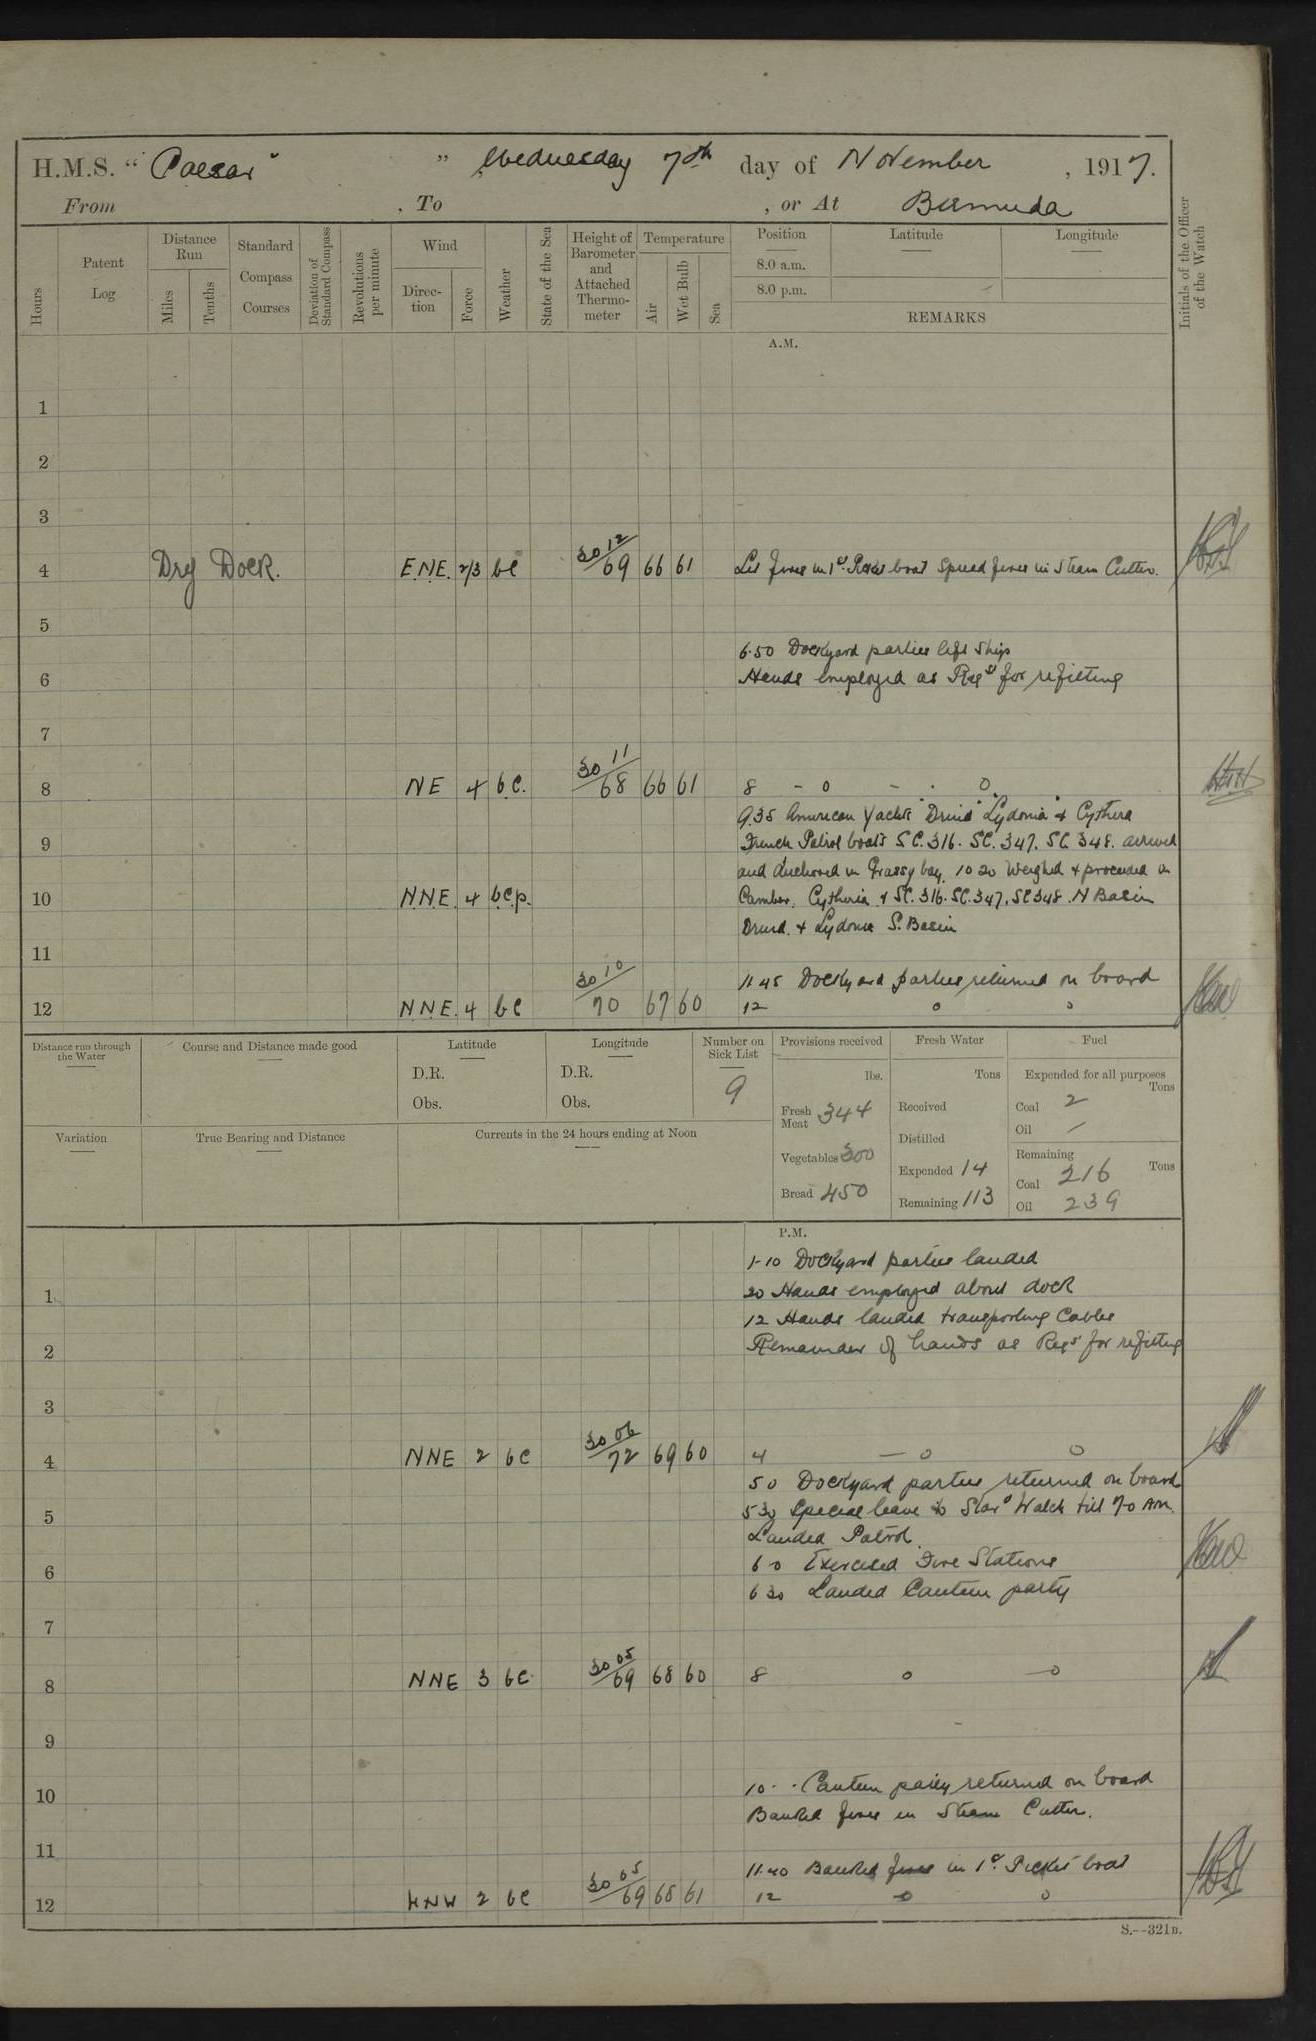 H.M.S. "Caesar" " Wednesday 7th day of November, 1917.
From , To , or At Bermuda
Hours
Patent Log
Distance Run
Miles
Tenths
Standard Compass Courses
Deviation of Standard Compass
Revolutions per minute
Wind
Direction
Force
Weather
State of the Sea
Height of Barometer and Attached Thermometer
Temperature
Air
Wet Bulb
Sea
Position
8.0 a.m.
8.0 p.m.
Latitude
Longitude
REMARKS
Initials of the Officer of the Watch
A.M.
1
2
3
4 Dry Dock. E.N.E. 2/3 bc 30 12/69 66 61 Lit fires in 1st Picket boat Spread fires in Steam Cutter.
5
6.50 Dockyard parties left ship
6 Hands employed as Reqd for refitting
7
8 NE 4 bc. 30 11/68 66 61 8 - 0 - . 0
9.35 American Yachts "Druid" "Lydonia" & Cythera
9 French Patrol boats S.C. 316. SC. 347. SC 348. arrived
and Anchored in Grassy bay. 10 20 Weighed & proceeded in
10 N.N.E. 4 bcp. Camber. Cytheria & SC. 316. SC. 347. SC 348. N Basin
Druid. & Lydonia S. Basin
11
11 45 Dockyard parties returned on board
12 N.N.E. 4 bc 30 10/70 67 60 12 0 0
Distance run through the Water
Course and Distance made good
Latitude
D.R.
Obs.
Longitude
D.R.
Obs.
Number on Sick List
9
Variation
True Bearing and Distance
Currents in the 24 hours ending at Noon
Provisions received
lbs.
Fresh Meat 344
Vegetables 300
Bread 450
Fresh Water
Tons
Received
Distilled
Expended 14
Remaining 113
Fuel
Expended for all purposes
Tons
Coal 2
Oil /
Remaining
Tons
Coal 216
Oil 239
P.M.
1-10 Dockyard parties landed
1 20 Hands employed about dock
12 Hands landed transporting Cables
2 Remainder of hands as Reqd for refitting
3
4 NNE 2 bc 30 06/72 69 60 4 — 0 0
5 0 Dockyard parties returned on board
5 5 30 Special leave to Star'd Watch till 7-0 AM.
Landed Patrol.
6 6 0 Exercised Fire Stations
6 30 Landed Canteen party
7
8 NNE 3 bc 30 05/69 68 60 8 0 0
9
10 10 - . Canteen party returned on board
Banked fires in Steam Cutter.
11
11.40 Banked fires in 1st Picket boat
12 WNW 2 bc 30 05/69 68 61 12 0 0
S.--321B.